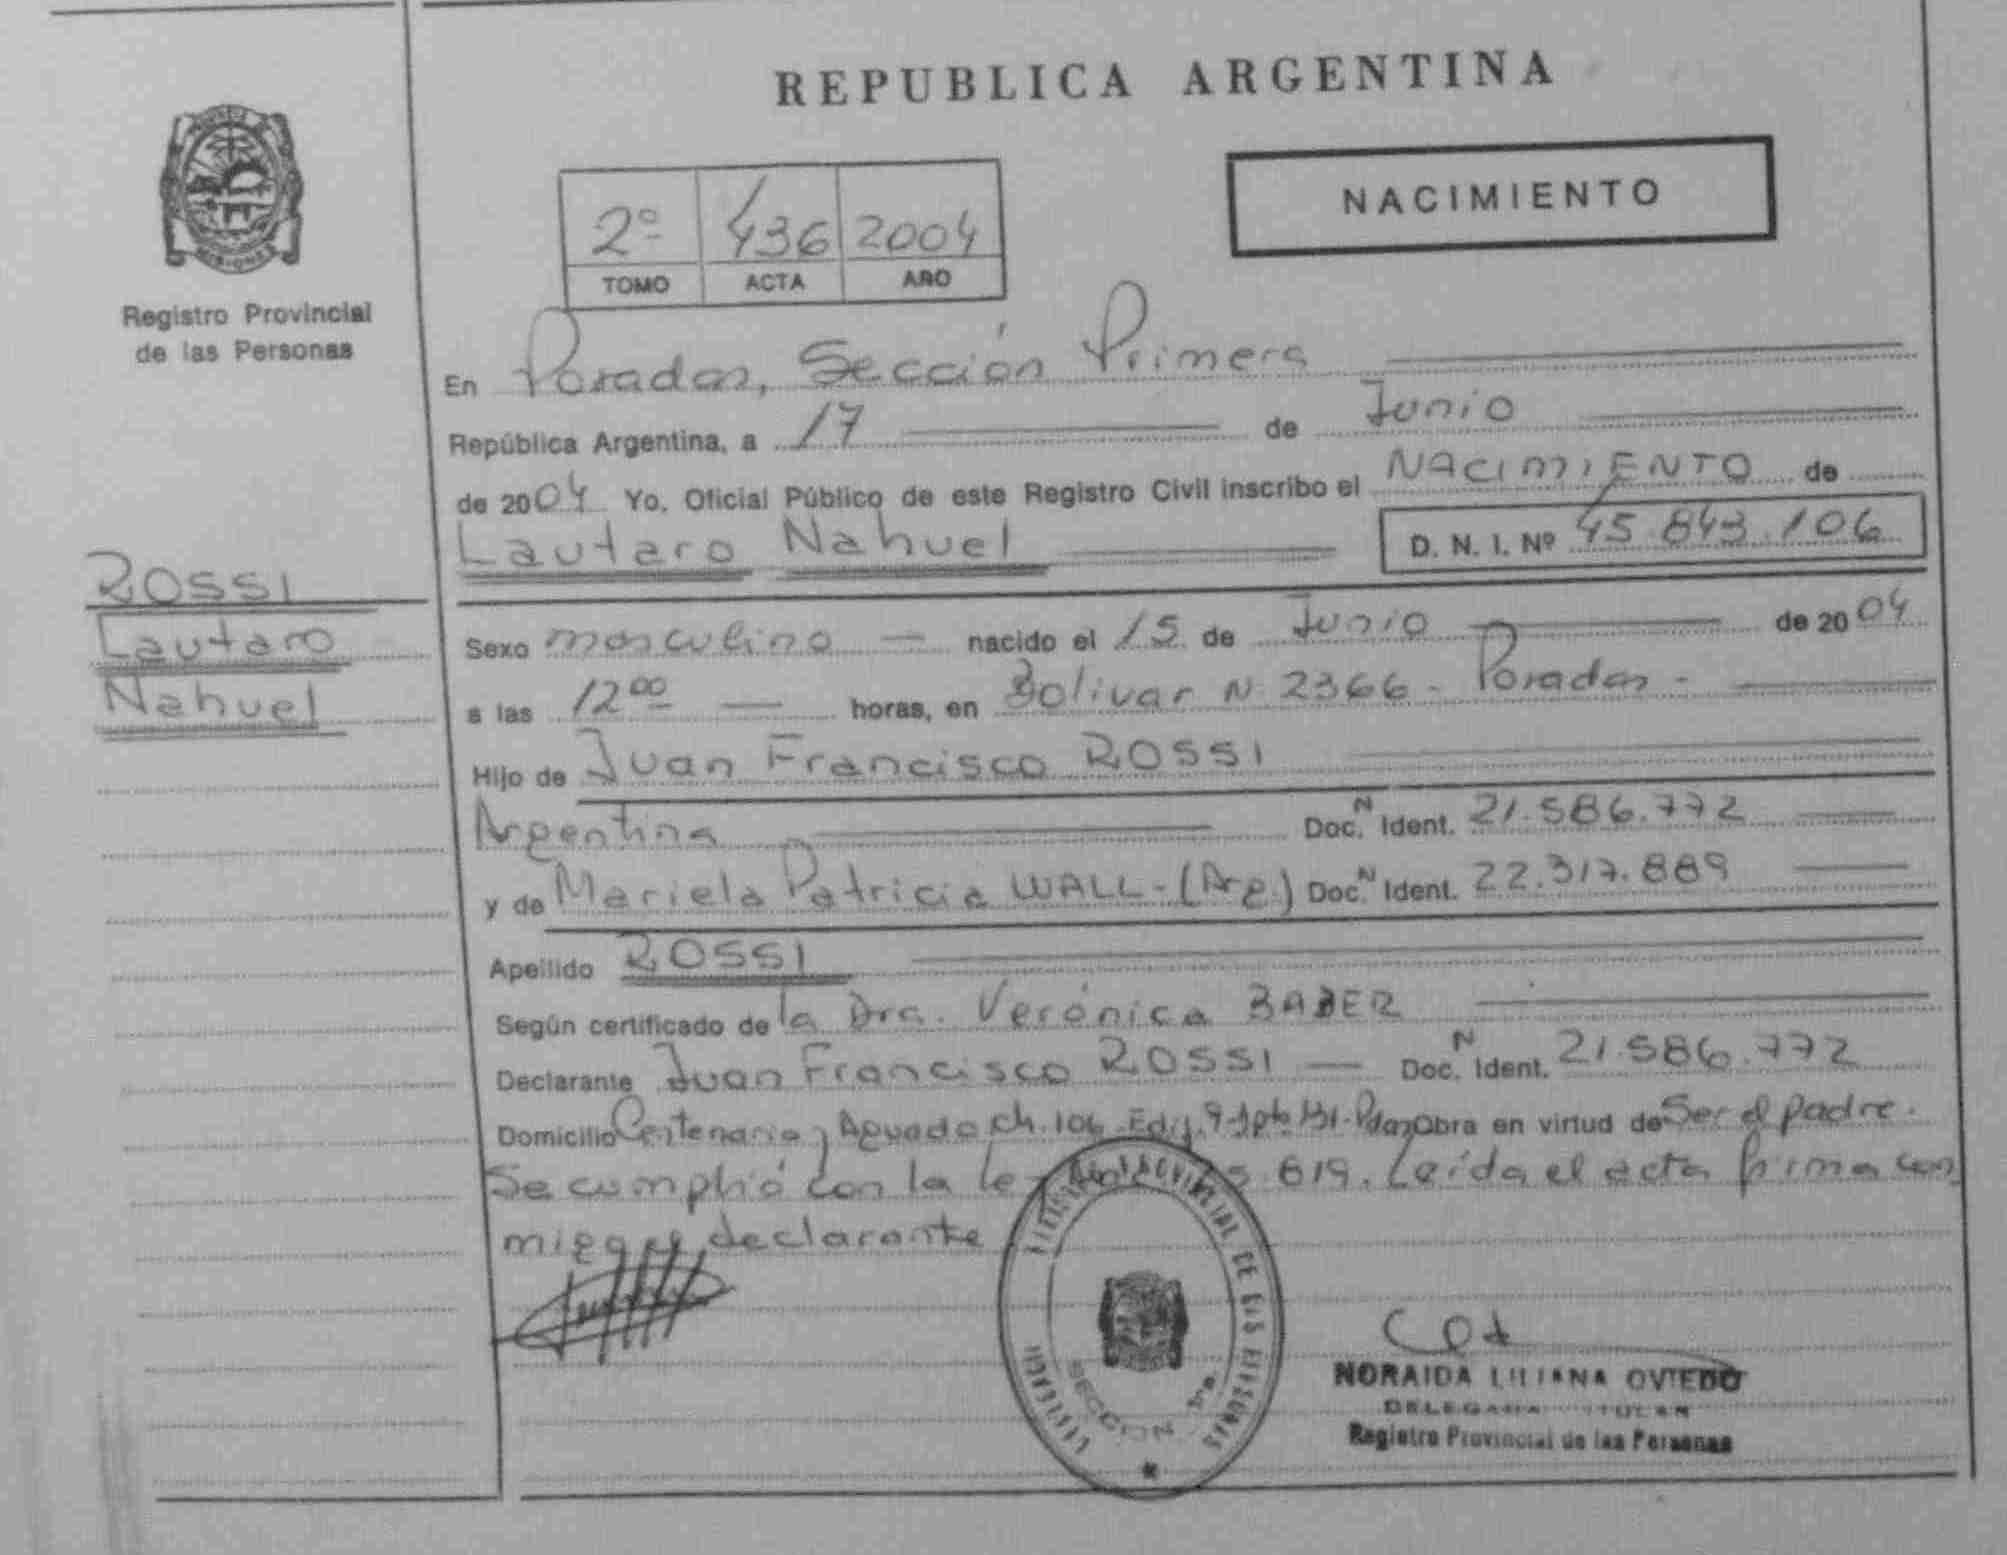 REPUBLICA ARGENTINA
NACIMIENTO
2º 436 2004
TOMO ACTA AÑO
Registro Provincial
de las Personas
En Posadas, Sección Primera
República Argentina, a 17 de Junio
de 2004 Yo, Oficial Público de este Registro Civil inscribo el NACIMIENTO de
Lautaro Nahuel D. N. I. Nº 45.843.106
ROSSI
Lautaro
Nahuel
Sexo masculino nacido el 15 de Junio de 2004
a las 12⁰⁰ horas, en Bolivar N 2366 - Posadas -
Hijo de Juan Francisco ROSSI
Argentina Doc. N Ident. 21.586.772
y de Mariela Patricia WALL - (Arg.) Doc. N Ident. 22.317.889
Apellido ROSSI
Según certificado de la Dra. Verónica BABER
Declarante Juan Francisco ROSSI Doc. N Ident. 21.586.772
Domicilio Centenario y Aguado Ch. 106 Edif. 9 Dpto Obra en virtud de Ser el padre.
Se cumplió con la 619. Leída el acta firma con
migo el declarante
REGISTRO PROVINCIAL DE LAS PERSONAS
SECCION 1ra.
NORAIDA LILIANA OVIEDO
DELEGADA TITULAR
Registro Provincial de las Personas